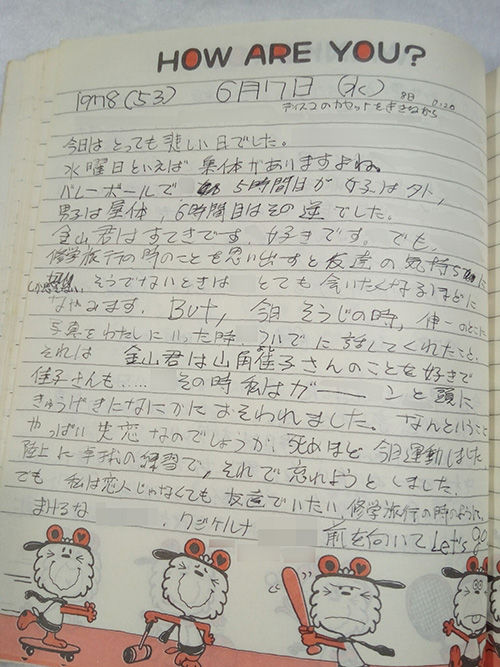 HOW ARE YOU?
1978(53) 6月7日(水)
8日 0:20
ディスコのカセットをききながら
今日はとっても悲しい日でした。
水曜日といえば集体がありますよね。
バレーボールで 5時間目が女子は外,
男子は屋体,6時間目はその逆でした。
金山君はすてきです。好きです。でも,
修学旅行の時のことを思い出すと友達の気持ちに
そうでないときは とても会いたくなるほどに
なやみます。But,今日そうじの時,伸一のとこに
写真をわたしにいった時,ついでに話してくれたこと,
それは 金山君は山角佳子さんのことを好きで
佳子さんも..... その時私はガーーンと頭に
きゅうげきになにかにおそわれました。なんということ
やっぱり失恋なのでしょうか,死ぬほど今日運動しました
陸上に卓球の練習で,それで忘れようとしました.
でも 私は恋人じゃなくても友達でいたい 修学旅行の時のように,
まけるな クジケルナ 前を向いて Let's go